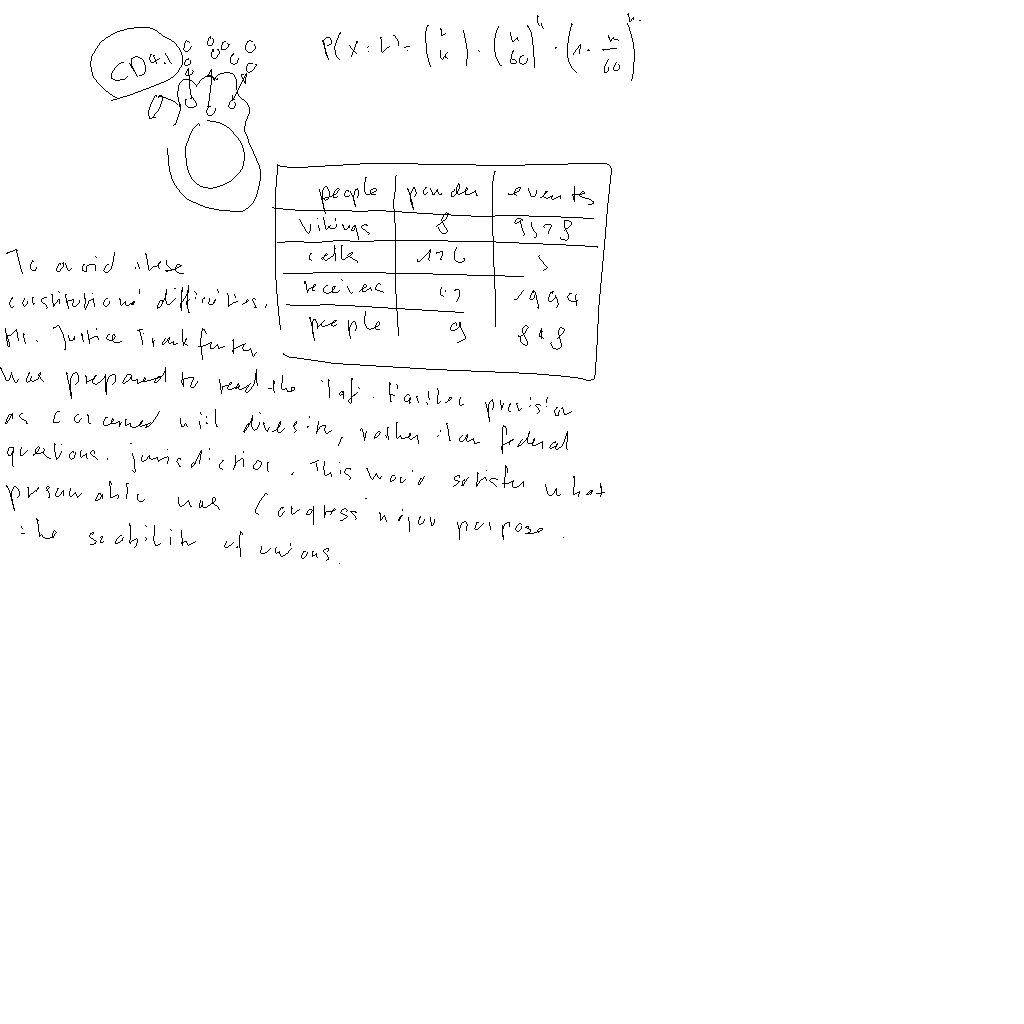 CD4+
P(X=k)=
people ponder events
vikings 8
cells 126
receivers
people 9 848
To avoid these
constitutional difficulties,
Mr. Justice Frankfurter
was prepared to read the Taft-Hartley provision
as concerned with diversity, rather than federal
question, jurisdiction. This would satisfy what
presumably was Congress' major purpose
the suability of unions.